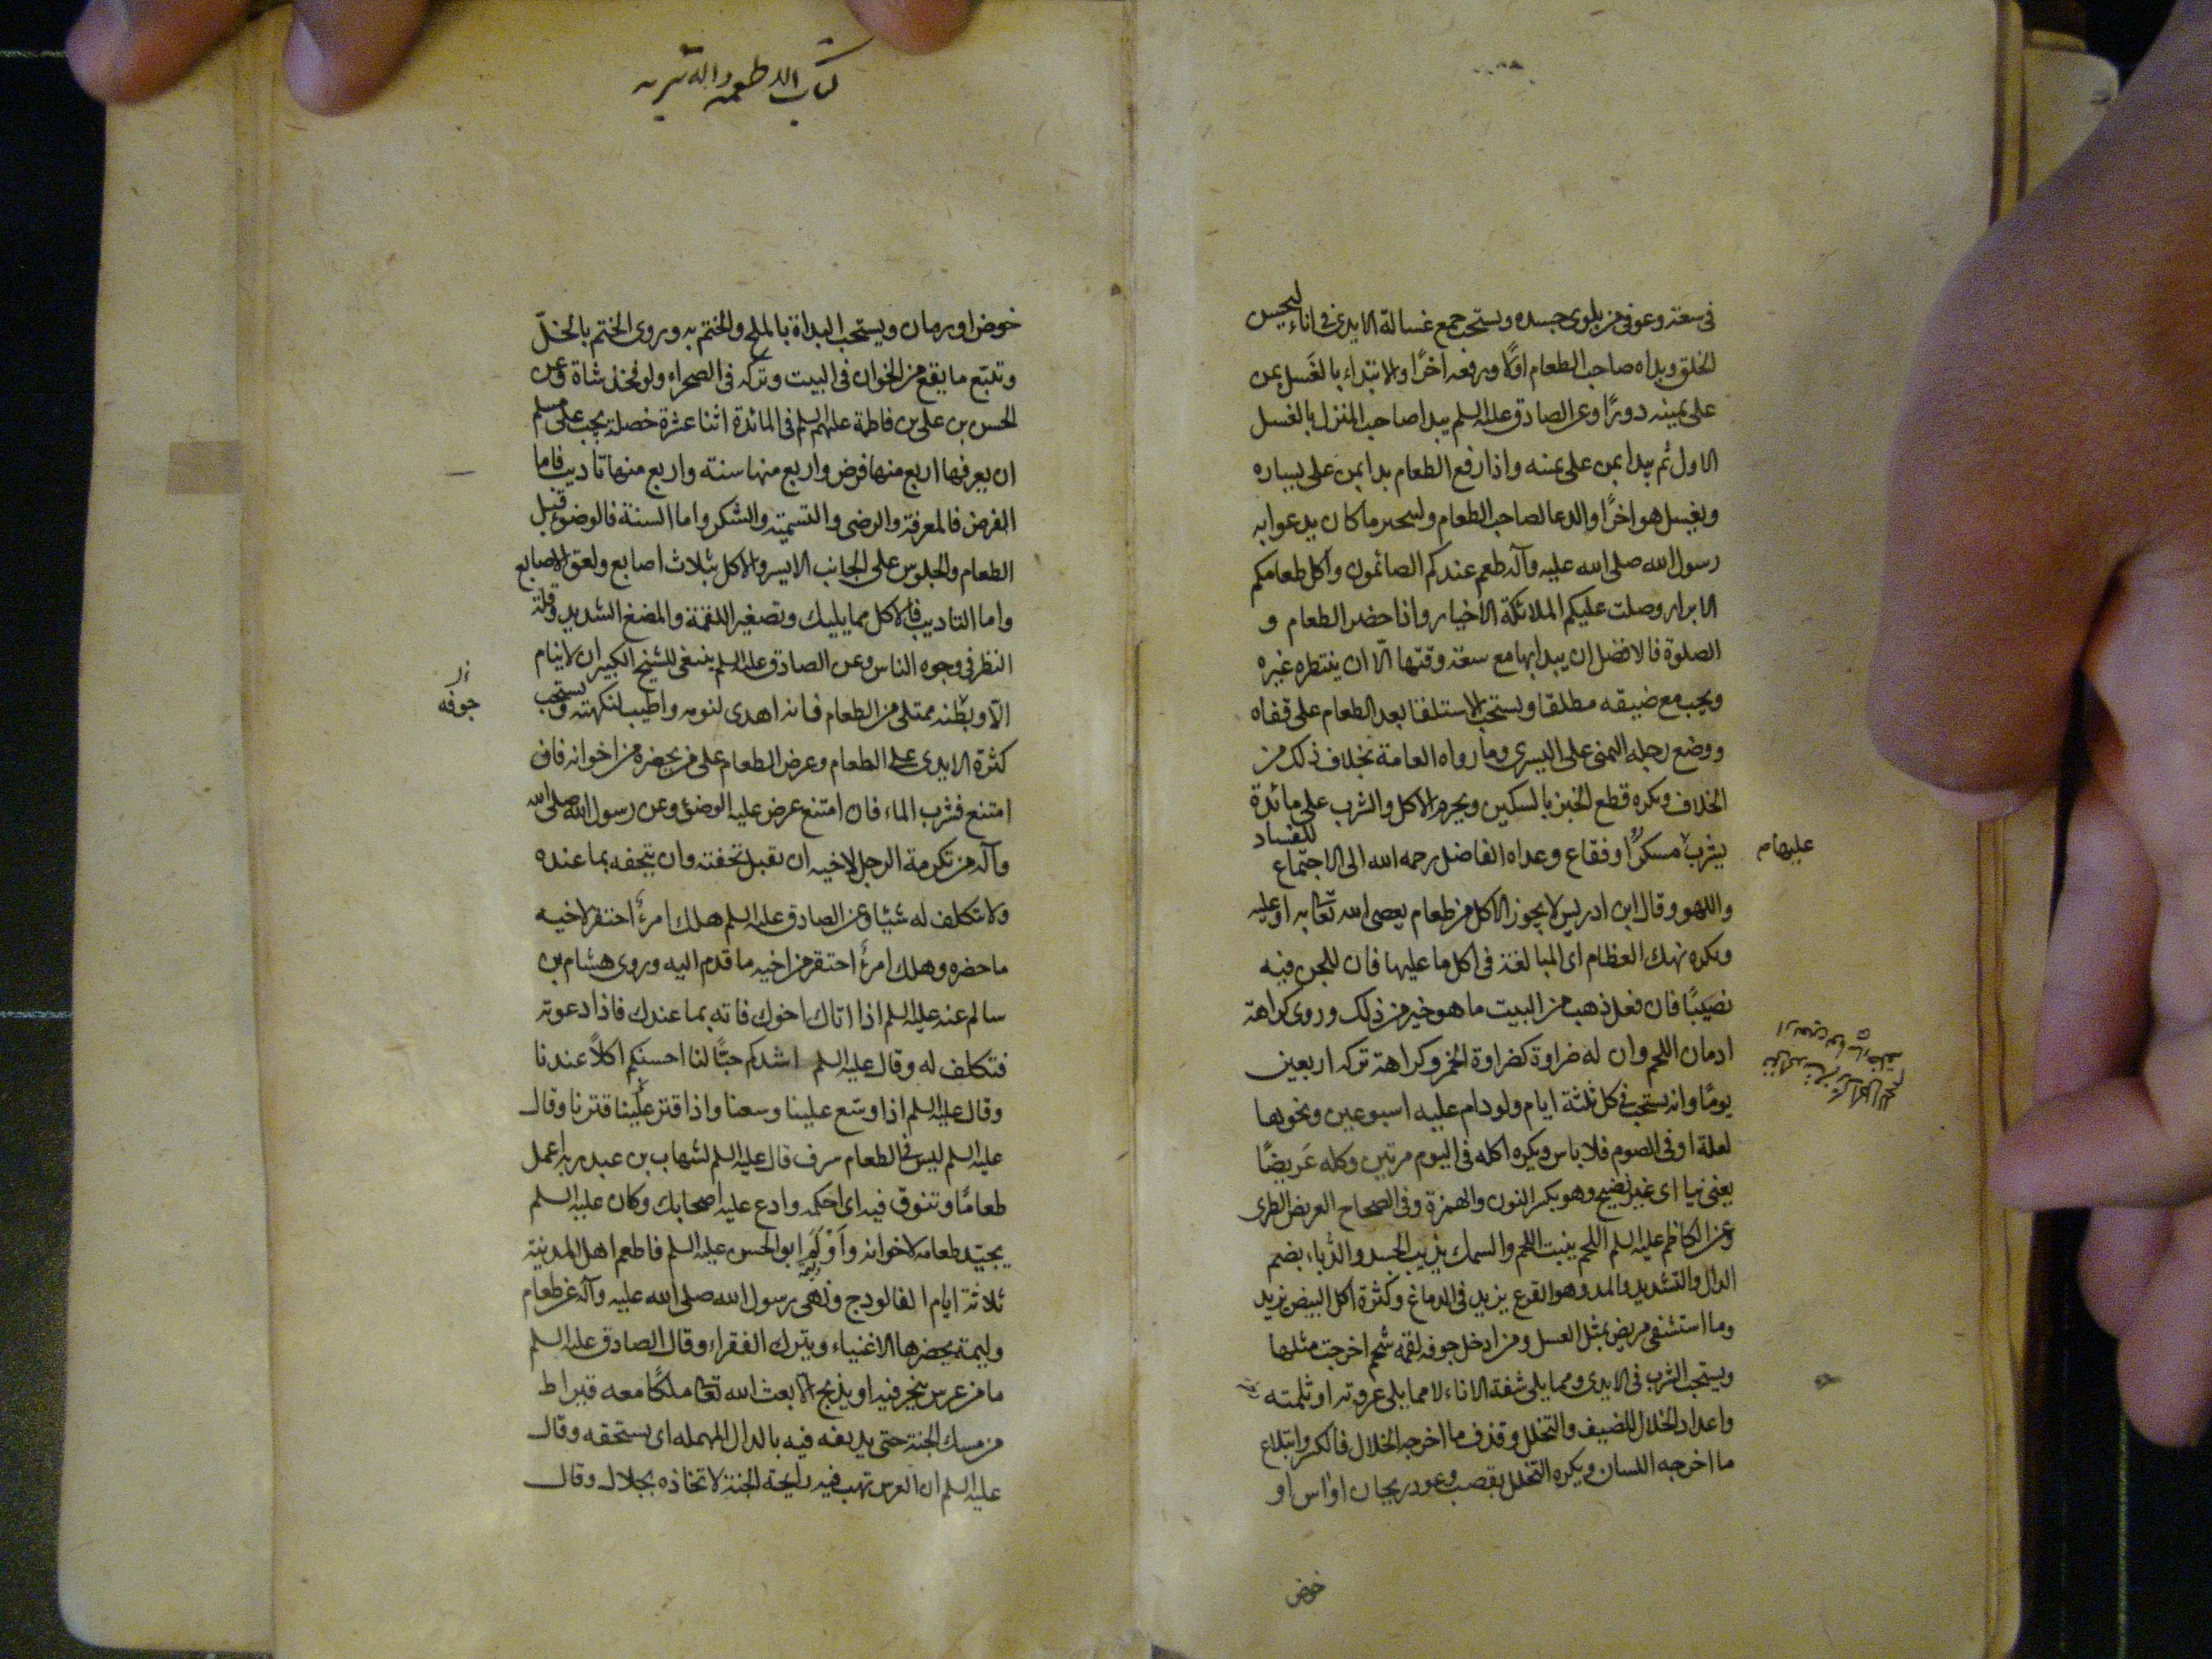 في سعة وعوفي من بلوى جسده ويستحب جمع غسالة الايدي في اناء ليحسن
الخلق ويبداه صاحب الطعام اولًا ويرفعه اخرًا والابتداء بالغسل بمن
على يمينه دورًا وعن الصادق عليه السلم يبدا صاحب المنزل بالغسل
الاول ثم يبدا بمن على يمينه واذا رفع الطعام بدا بمن على يساره
ويغسل هو اخرًا والدعا لصاحب الطعام وليتخير ما كان يدعوا به
رسول الله صلى الله عليه وآله طعم عندكم الصائمون واكل طعامكم
الابرار وصلت عليكم الملائكة الاخيار واذا حضر الطعام و
الصلوة فالافضل ان يبدا بها مع سعة وقتها الّا ان ينتظره غيره
ويجب مع ضيقه مطلقا ويستحب الاستلقا بعد الطعام على قفاه
ووضع رجله اليمنى على اليسرى وما رواه العامة بخلاف ذلك من
الخلاف ويكره قطع الخبز بالسكين ويحرم الاكل والشرب على مائدة
يشرب عليها م مسكرٌ او فقاع وعداه الفاضل رحمه الله الى الاجتماع للفساد
واللهو وقال ابن ادريس لا يجوز الاكل من طعام يعصى الله تعالى به او عليه
ويكره نهك العظام اى المبالغة في اكل ما عليها فان للجن فيه
نصيبًا فان فعل ذهب من البيت ما هو خير من ذلك وروى كراهة
ادمان اللحم وان له ضراوة كضراوة الخمر وكراهة تركه اربعين
يومًا وانه يستحب في كل ثلثة ايام ولو دام عليه اسبوعين ونحوها
لعلة او في الصوم فلا باس ويكره اكله في اليوم مرتين وكله غريضًا
يعنى نيا اى غير نضيج وهو بكسر النون والهمزة وفي الصحاح الغريض الطري
وعن الكاظم عليه السلم اللحم ينبت اللحم والسمك يذيب الجسد والدُّباء بضم
الدال والتشديد والمد وهو القرع يزيد في الدماغ وكثرة اكل البيض يزيد
وما استشفى مريض بمثل العسل ومن ادخل جوفه لقمة شحم اخرجت مثلها
ويستحب الشرب في الايدى ومما يلى شفة الاناء لا مما يلى عروته او ثلمته
واعداد الخلال للضيف والتخلل وقذف ما اخرجه الخلال فالكره وابتلاع
ما اخرجه اللسان ويكره التخلل بقصب وعود ريحان او اس او
خوص
كتاب الاطعمه والاشربه
خوص او رمان ويستحب البداة بالملح والختم به وروى الختم بالخلّ
وتتبع ما يقع من الخوان في البيت وتركه في الصحراء ولو فخذ شاة وعن
الحسن بن على بن فاطمة عليهم السلم في المائدة اثنا عشرة خصلة يجب على مسلم
ان يعرفها اربع منها فرض واربع منها سنة واربع منها تاديب فاما
الفرض فالمعرفة والرضى والتسمية والشكر واما السنة فالوضوء قبل
الطعام والجلوس على الجانب الايسر والاكل بثلاث اصابع ولعق الاصابع
واما التاديب فالاكل مما يليك وتصغير اللقمة والمضغ الشديد وقلة
النظر في وجوه الناس وعن الصادق عليه السلم ينبغى للشيخ الكبير ان لا ينام
الّا وبطنه ممتلى من الطعام فانه اهدى لنومه واطيب لنكهته ويستحب
جوفه
كثرة الايدى على الطعام وعرض الطعام على من يحضره من اخوانه فان
امتنع فشرب الماء فان امتنع عرض عليه الوضوء وعن رسول الله صلى الله
وآله من تكرمة الرجل لاخيه ان يقبل تحفته وان يتحفه بما عنده
ولا يتكلف له شيئا وعن الصادق عليه السلم هلك امرءٌ احتقر لاخيه
ما حضره وهلك امرءٌ احتقر من اخيه ما قدم اليه وروى هشام بن
سالم عنه عليه السلم اذا اتاك اخوك فاته بما عندك فاذا دعوته
فتكلف له وقال عليه السلم اشدكم حبًّا لنا احسنكم اكلًا عندنا
وقال عليه السلم اذا وسّع علينا وسعنا واذا قتر علينا قترنا وقال
عليه السلم ليس في الطعام سرف قال عليه السلم لشهاب بن عبد ربه اعمل
طعامًا وتنوق فيه اى احكمه وادع عليه اصحابك وكان عليه السلم
يجيّد طعامه لاخوانه وأَوْلَم ابو الحسن عليه السلم فاطعم اهل المدينة
ثلاثة ايام الفالوذج ونهى رسول الله صلى الله عليه وآله عن طعام
وليمة يحضرها الاغنياء ويترك الفقراء وقال الصادق عليه السلم
ما من عرس ينحر فيه او يذبح الا بعث الله تعالى ملكًا معه قيراط
من مسك الجنة حتى يديفه فيه بالدال المهمله اى يستحقه وقال
عليه السلم ان العرس تهب فيه رايحة الجنة لاتخاذه بحلال وقال